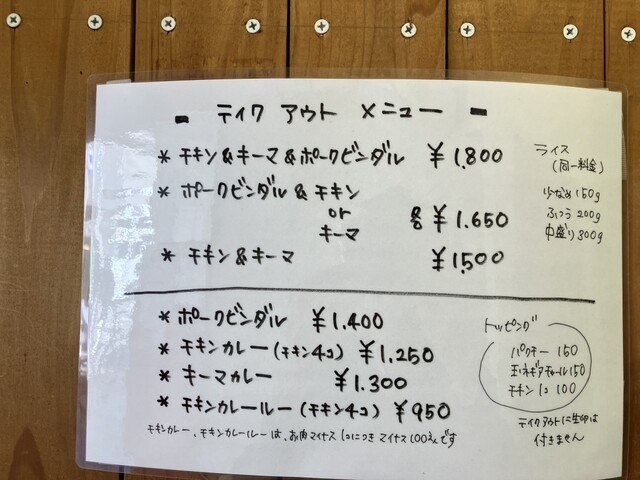 - テイクアウト メニュー -
* チキン&キーマ&ポークビンダル ¥1,800
* ポークビンダル&チキン
or
キーマ
各¥1,650
* チキン&キーマ ¥1,500
ライス
(同一料金)
少なめ150g
ふつう200g
中盛り300g
* ポークビンダル ¥1,400
* チキンカレー(チキン4コ) ¥1,250
* キーマカレー ¥1,300
* チキンカレールー(チキン4コ) ¥950
チキンカレー、チキンカレールーは、お肉マイナス1コにつきマイナス100えんです
トッピング
パクチー 150
玉ネギアチャール150
チキン1コ 100
テイクアウトに生卵は
付きません